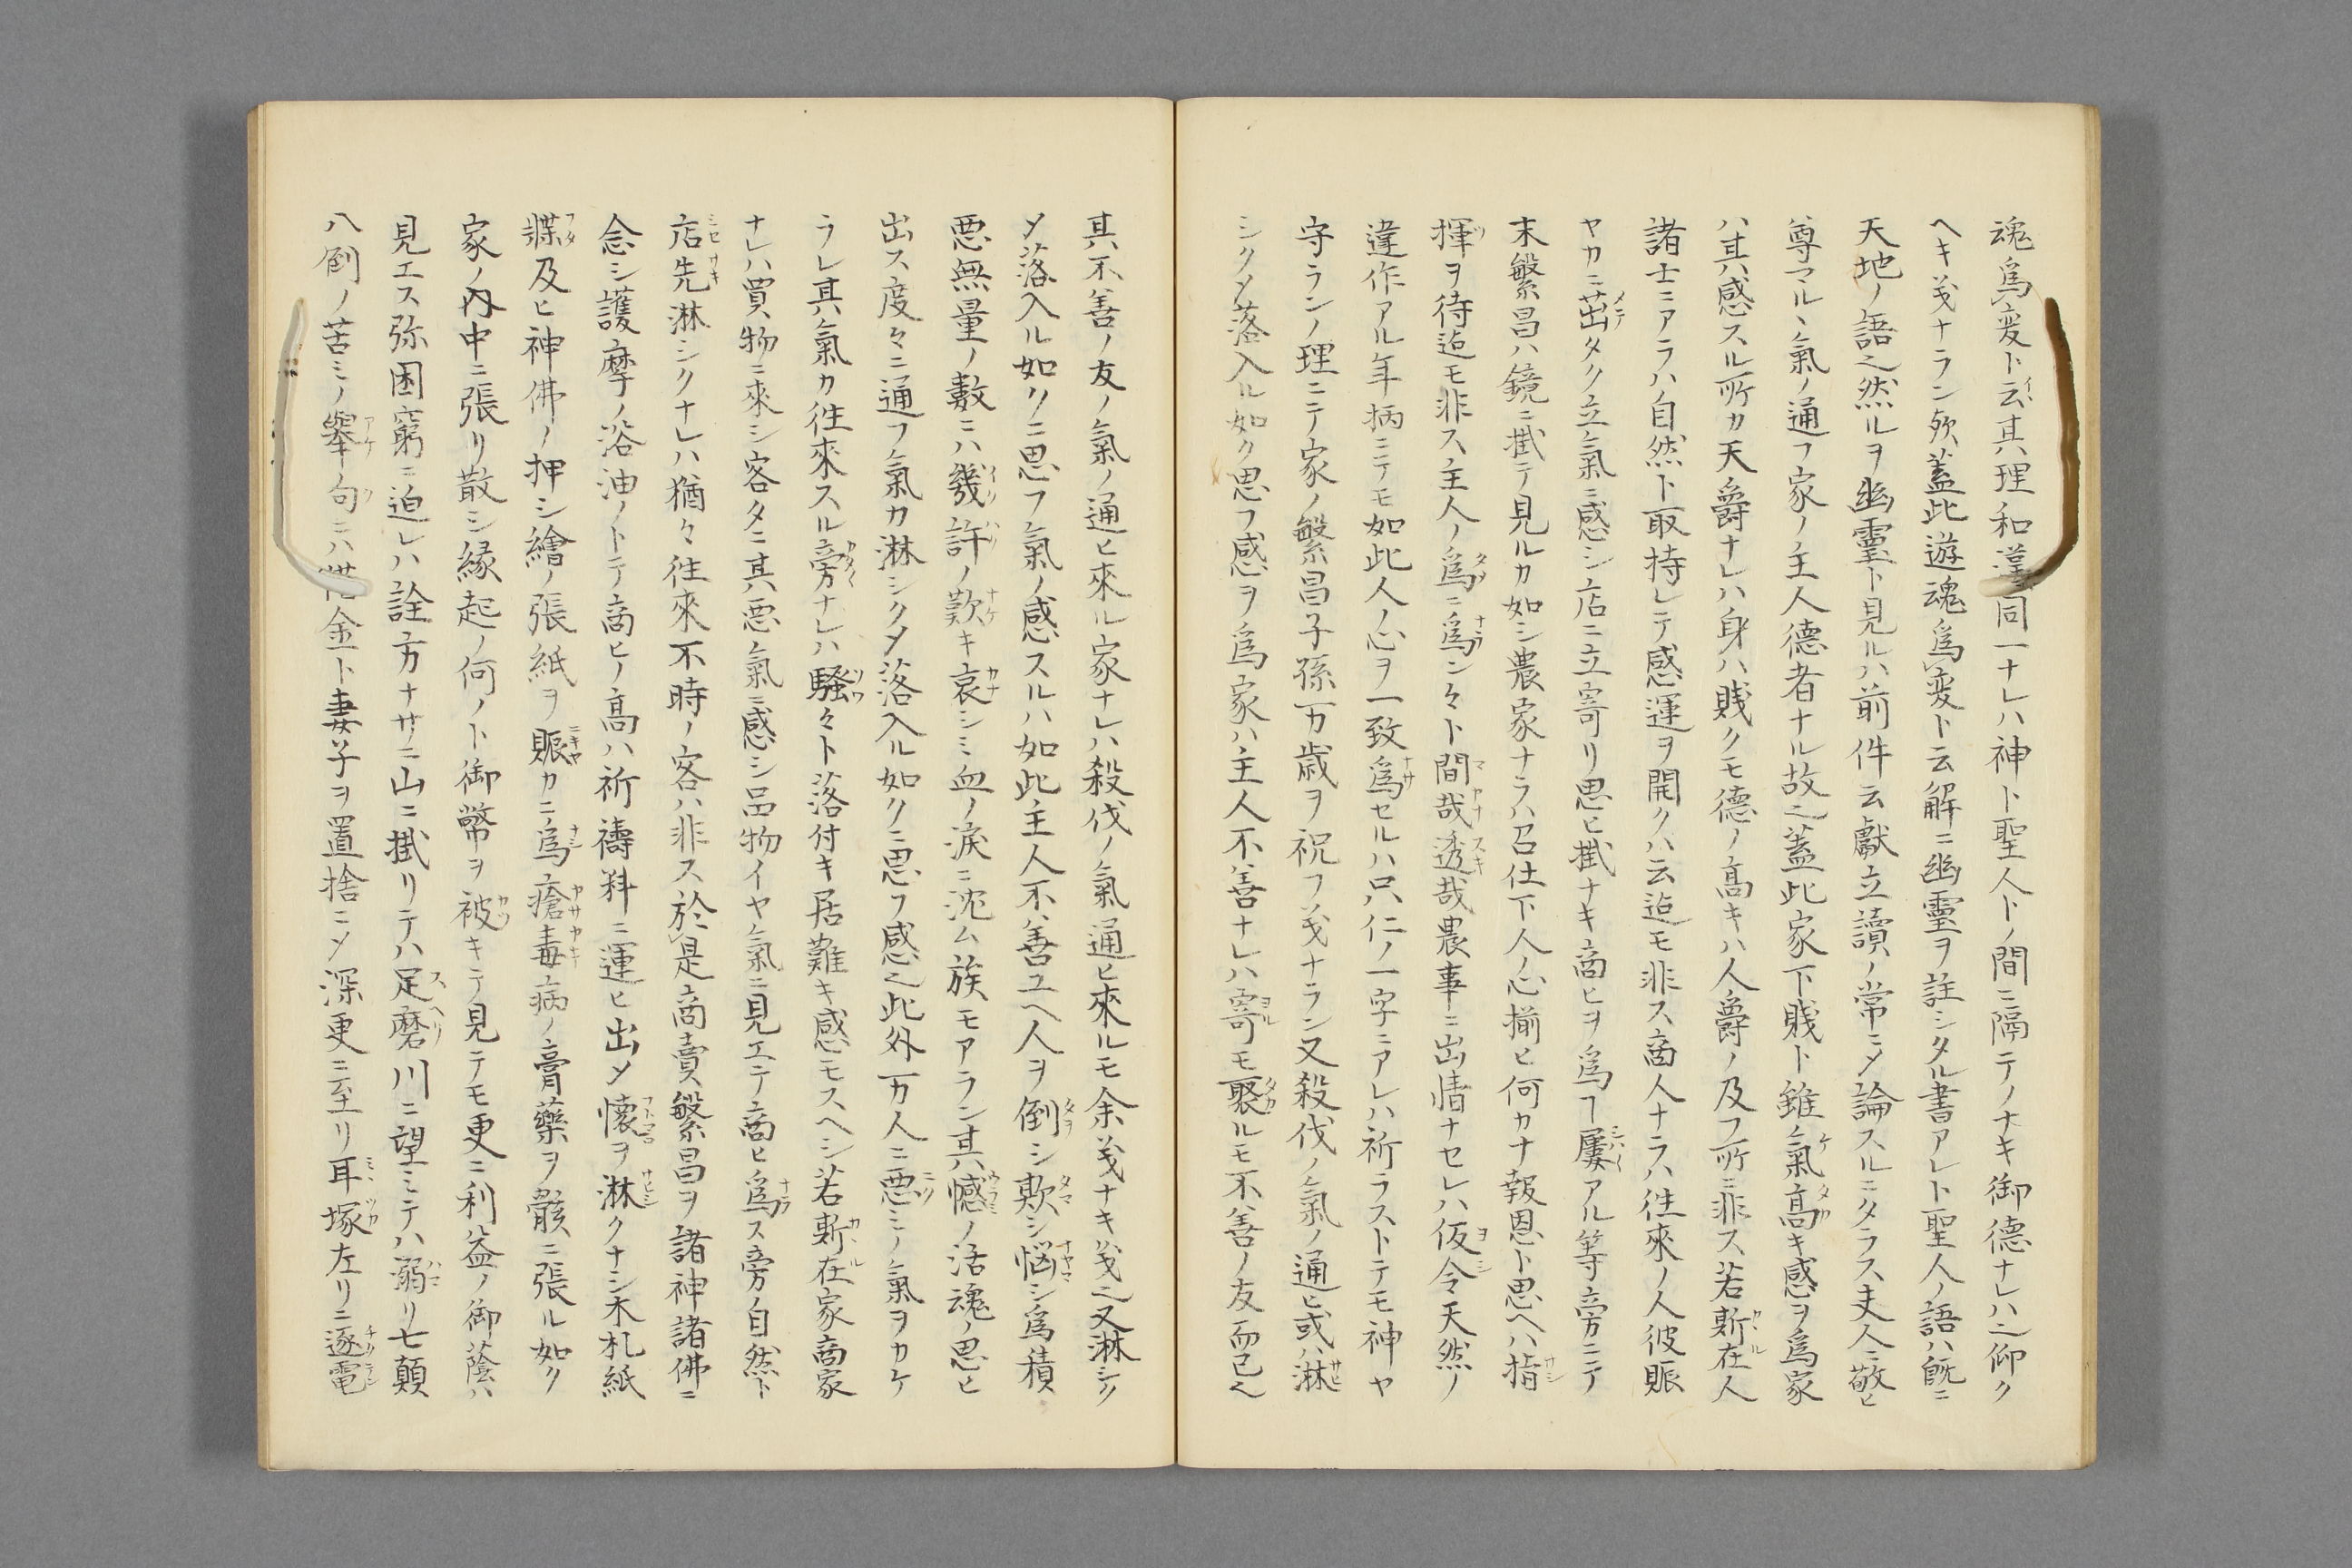 魂爲変ト云其理和漢同一ナレハ神ト聖人トノ間ニ隔テノナキ御德ナレハ之仰ク
ヘキ㐧ナラン歟蓋此遊魂爲変ト云解ニ幽靈ヲ註シタル書アレト聖人ノ語ハ既ニ
天地ノ語之然ルヲ幽靈ト見ルハ前件云獻立讀ノ常ニメ論スルニタラス夫人ニ敬ヒ
尊マルヽ氣ノ通フ家ノ主人德者ナル故之蓋此家下賎ト雖氣高キ感ヲ爲家
ハ其感スル所カ天爵ナレハ身ハ賎クモ德ノ高キハ人爵ノ及フ所ニ非ス若斯在人
諸士ニアラハ自然ト取持レテ感運ヲ開クハ云迠モ非ス商人ナラハ往來ノ人彼賑
ヤカニ茁タク立氣ニ感シ店ニ立寄リ思ヒ掛ナキ商ヒヲ爲ヿ屢アル等旁ニテ
末繁昌ハ鏡ニ掛テ見ルカ如シ農家ナラハ召仕下人ノ心揃ヒ何カナ報恩ト思ヘハ指
揮ヲ待迠モ非ス主人ノ爲ニ爲ン々ト間哉透哉農事ニ出情ナセレハ仮令天然ノ
違作アル年柄ニテモ如此人ノ心ヲ一致爲セルハ只仁ノ一字ニアレハ祈ラストテモ神ヤ
守ランノ理ニテ家ノ繁昌子孫万歳ヲ祝フノ㐧ナラン又殺伐ノ氣ノ通ヒ或ハ淋
シクメ落入ル如ク思フ感ヲ爲家ハ主人不善ナレハ寄モ聚ルモ不善ノ友而已之
其不善ノ友ノ氣ノ通ヒ來ル家ナレハ殺伐ノ氣通ヒ來ルモ余㐧ナキ㐧之又淋シク
メ落入ル如クニ思フ氣ノ感スルハ如此主人不善ユヘ人ヲ倒シ欺シ悩シ爲積
悪無量ノ數ニハ幾許ノ歎キ哀シミ血ノ淚ニ沈ム族モアラン其憾ノ活魂ノ思ヒ
出ス度々ニ通フ氣カ淋シクメ落入ル如クニ思フ感之此外万人ニ悪ミノ氣ヲカケ
ラレ其氣カ往來スル旁ナレハ騒々ト落付キ居難キ感モスヘシ若斯在家商家
ナレハ買物ニ來シ客タニ其悪氣ニ感シ品物イヤ氣ニ見エテ商ヒ爲ス旁自然ト
店先淋シクナレハ猶々往來不時ノ客ハ非ス於是商賣繁昌ヲ諸神諸佛ニ
念シ護摩ノ浴油ノトテ商ヒノ高ハ祈禱料ニ運ヒ出メ懷ヲ淋クナシ木札紙
牒及ヒ神佛ノ押シ繪ノ張紙ヲ賑カニ爲瘡毒病ノ膏藥ヲ骸ニ張ル如ク
家ノ內中ニ張リ散シ縁起ノ何ノト御幣ヲ被キテ見テモ更ニ利益ノ御蔭ハ
見エス弥困窮ニ迫レハ詮方ナサニ山ニ掛リテハ足磨川ニ望ミテハ溺リ七顛
八倒ノ苦ミノ擧句ニハ 金ト妻子ヲ置捨ニメ深更ニ至リ耳塚左リニ逐電